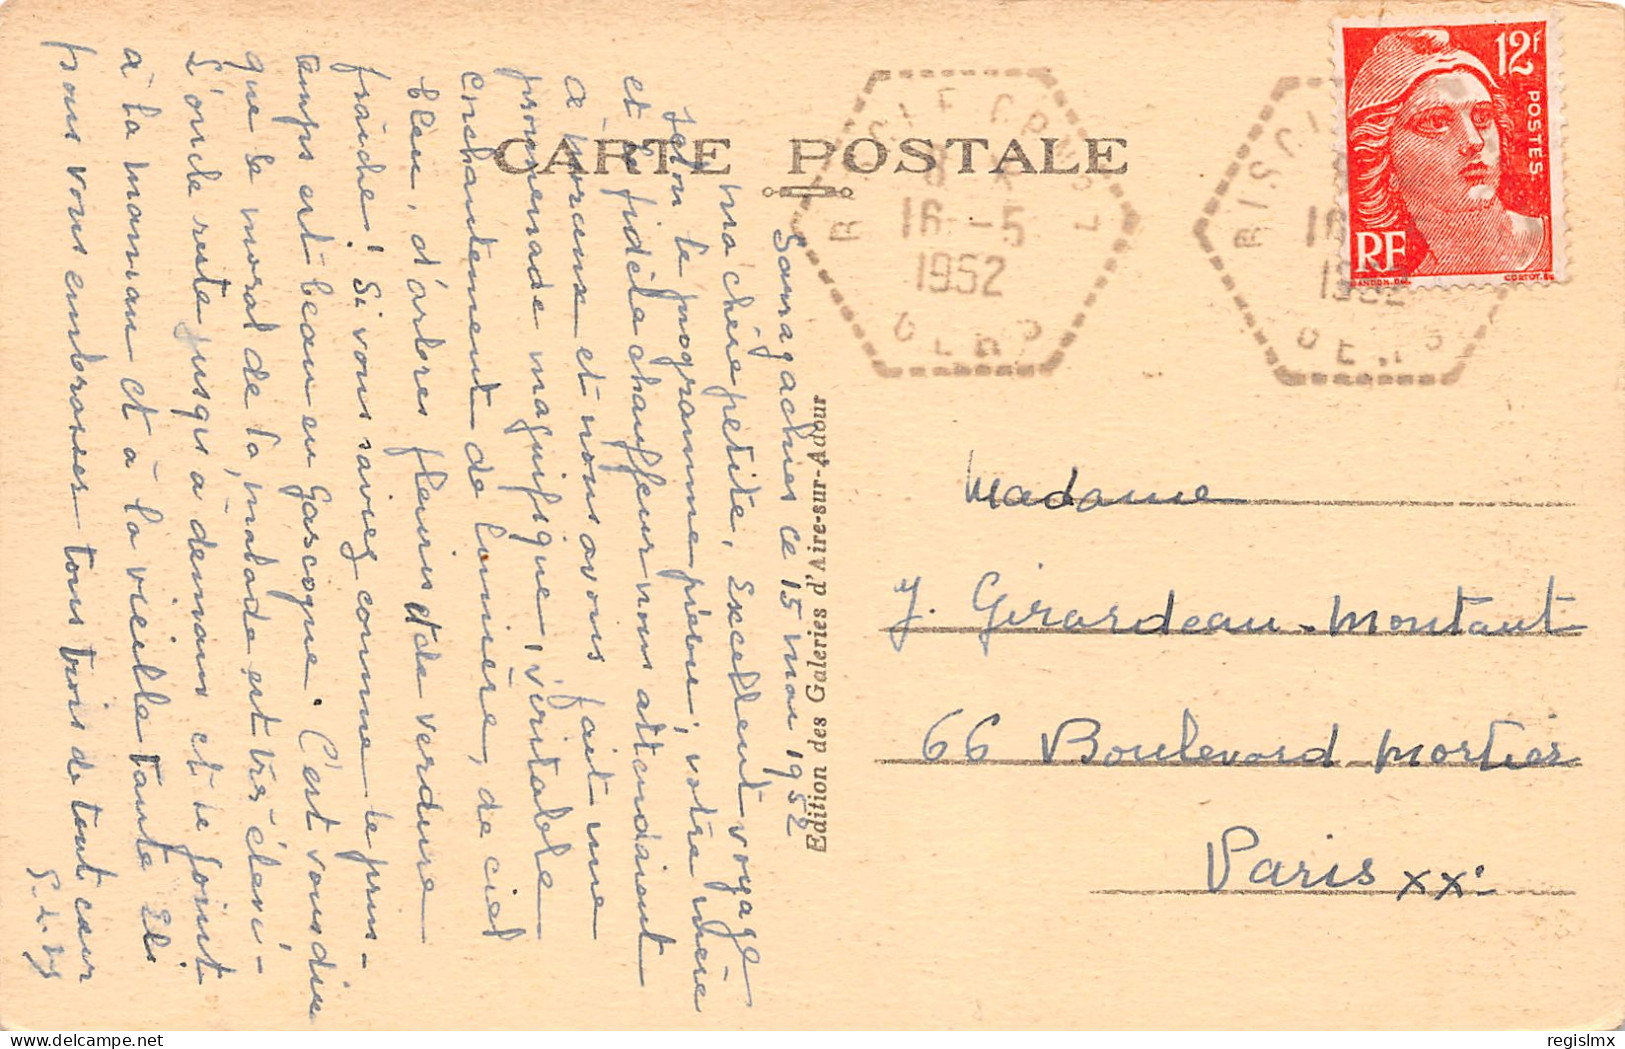 CARTE POSTALE
Sarragachies ce 15 mai 1952
Ma chère petite, Excellent voyage
selon le programme prévu, votre chère
et fidèle chauffeur nous attendaient
à Morcenx et nous avons fait une
promenade magnifique, véritable
enchantement de lumière, de ciel
bleu, d'arbres fleuris et de verdure
fraîche! Si vous saviez comme le prin-
temps est beau en Gascogne. C'est vous dire
que le moral de la malade est très élevé -
L'oncle reste jusqu'à demain et se joint
à la maman et à la vieille tante
pour vous embrasser tous trois de tout cœur
Edition des Galeries d'Aire-sur-Adour
16 -5
1952
GERS
RISCLE
16
1952
GERS
12F
POSTES
RF
GANDON.DEL.
CORTOT.SC.
Madame
J. Girardeau-Montaut
66 Boulevard Mortier
Paris XXe
regislmx